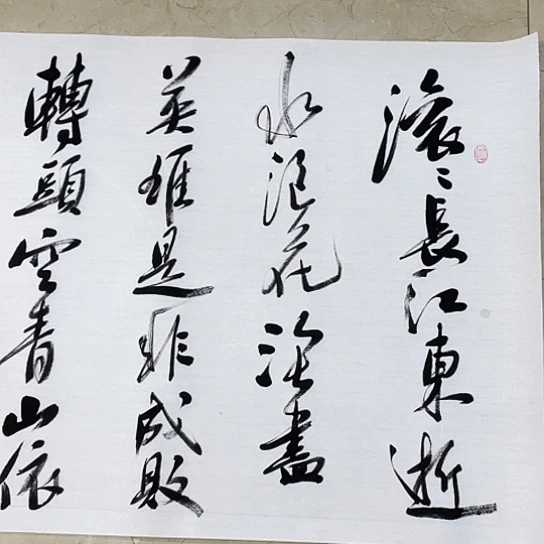 滚〻長江東逝
水浪花淘盡
英雄是非成敗
轉頭空青山依